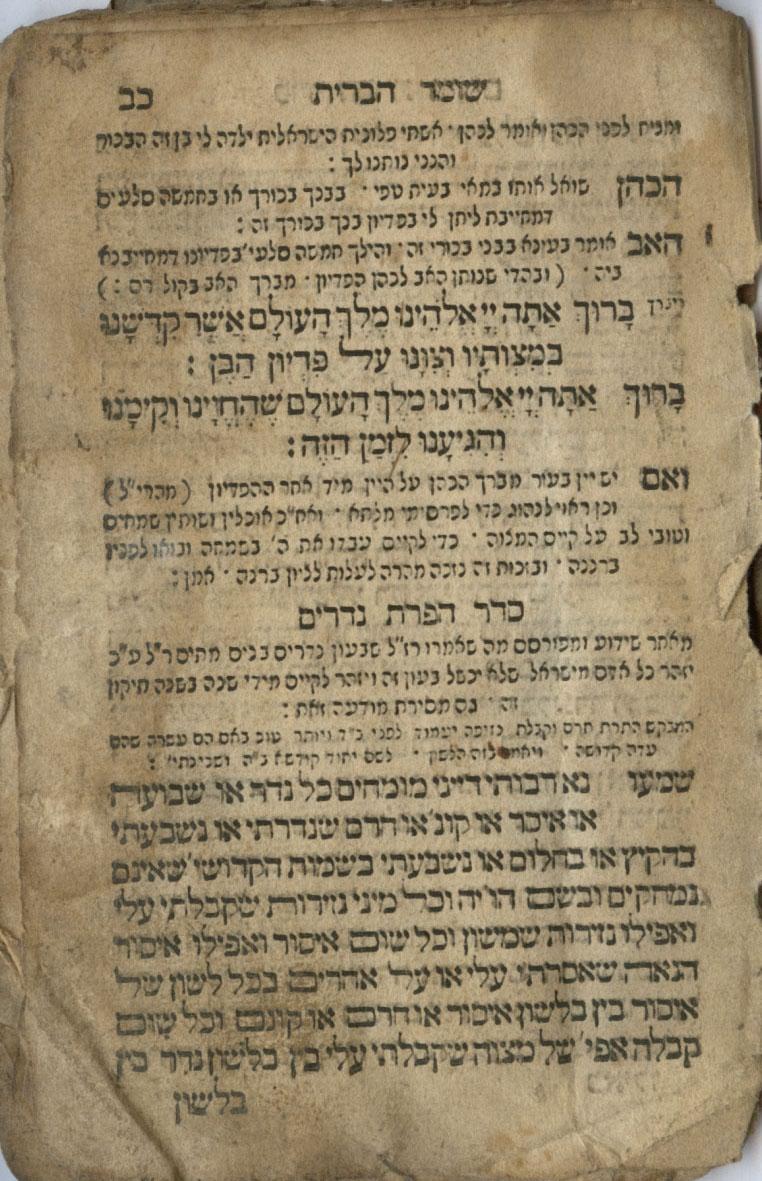 שומר הברית כב
ומביא לפני הכהן ואומר לכהן · אשתי פלונית הישראלית ילדה לי בן זה הבכור
והנני נותנו לך :
הכהן שואל אותו במאי בעית טפי · בבנך בכורך או בחמשה סלעים
דמחייבת ליתן לי בפדיון בנך בכורך זה :
האב אומר בעינא בבני בכורי זה · והילך חמשה סלעי' בפדיונו דמחייבנא
ביה · ( ובהדי שנותן האב לכהן הפדיון · מברך האב בקול רם : )
בָּרוּךְ אַתָּה יְיָ אֱלֹהֵינוּ מֶלֶךְ הָעוֹלָם אֲשֶׁר קִדְּשָׁנוּ
בְּמִצְוֹתָיו וְצִוָּנוּ עַל פִּדְיוֹן הַבֵּן :
בָּרוּךְ אַתָּה יְיָ אֱלֹהֵינוּ מֶלֶךְ הָעוֹלָם שֶׁהֶחֱיָנוּ וְקִיְּמָנוּ
וְהִגִּיעָנוּ לַזְּמַן הַזֶּה :
ואם יש יין בעיר מברך הכהן על היין מיד אחר הפדיון ( מהרי״ל )
וכן ראוי לנהוג כדי לפרסומי מלתא · ואח״כ אוכלין ושותין שמחים
וטובי לב על קיום המצוה · כדי לקיים עבדו את ה' בשמחה ובואו לפניו
ברננה · ובזכות זה נזכה מהרה לעלות לציון ברנה · אמן :
סדר הפרת נדרים
מאחר שידוע ומפורסם מה שאמרו רז״ל שבעון נדרים בנים מתים ר״ל ע״כ
יזהר כל אדם מישראל שלא יכשל בעון זה ויזהר לקיים מידי שנה בשנה תיקון
זה · גם מסירת מודעה זאת :
המבקש התרת חרם וקבלת נזיפה יעמוד לפני ב״ד ויותר טוב באם הם עשרה שהם
עדה קדושה · ויאמר לזה הלשון · לשם יחוד קודשא ב״ה ושכינתי' :
שמעו נא רבותי דייני מומחים כל נדר או שבועה
או איסר או קונ' או חרם שנדרתי או נשבעתי
בהקיץ או בחלום או נשבעתי בשמות הקדושי' שאינם
נמחקים ובשם הוי״ה וכל מיני נזירות שקבלתי עלי
ואפילו נזרות שמשון וכל שום איסור ואפילו איסור
הנאה שאסרתי עלי או על אחרים בכל לשון של
איסור בין בלשון איסור או חרם או קונם וכל שום
קבלה אפי' של מצוה שקבלתי עלי בין בלשון נדר בין
בלשון